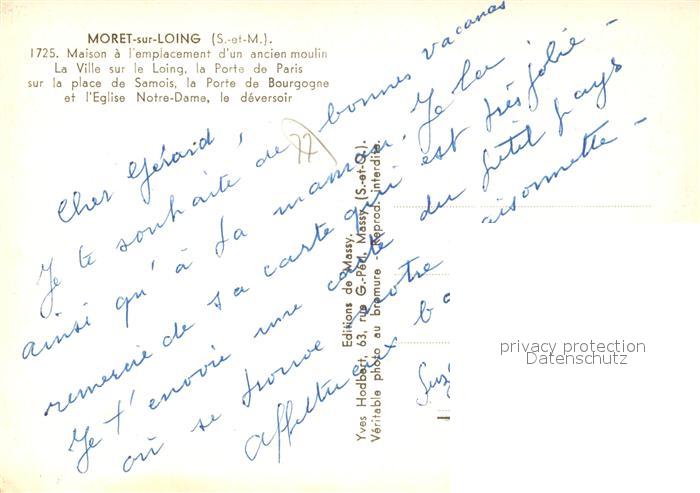 MORET-sur-LOING (S.-et-M.).
1725. Maison à l'emplacement d'un ancien moulin
La Ville sur le Loing, la Porte de Paris
sur la place de Samois, la Porte de Bourgogne
et l'Eglise Notre-Dame, le déversoir
77
Cher Gérard,
Je te souhaite de bonnes vacances
ainsi qu'à ta maman. Je la
remercie de sa carte qui est très jolie -
Je t'envoie une carte du petit pays
où se trouve notre maisonnette -
Affectueux
Editions de Massy.
Yves Hodbert, 63, rue G.-Péri, Massy (S.-et-O.)
Véritable photo au bromure - Reprod. interdite.
privacy protection
Datenschutz